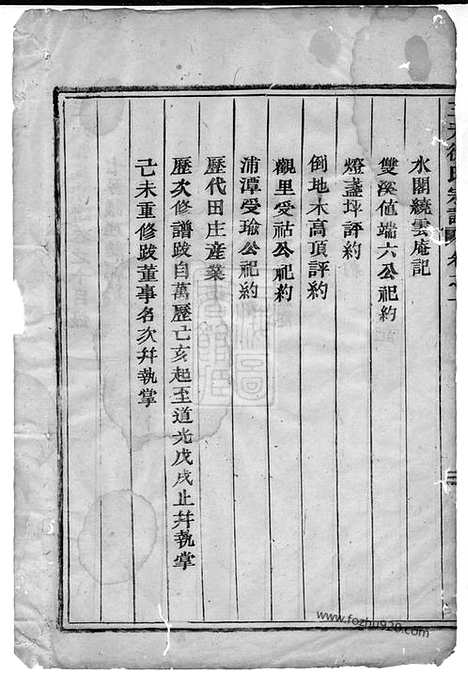 徐氏宗譜
水閣繞雲庵記
雙溪值端六公祀約
燈盞坪評約
倒地木高頂評約
觀里受祜公祀約
浦潭受瑜公祀約
歷代田庄産業
歷次修譜跋自萬歷己亥起至道光戊戌止并執掌
己未重修跋董事名次并執掌
www.fozhu920.com